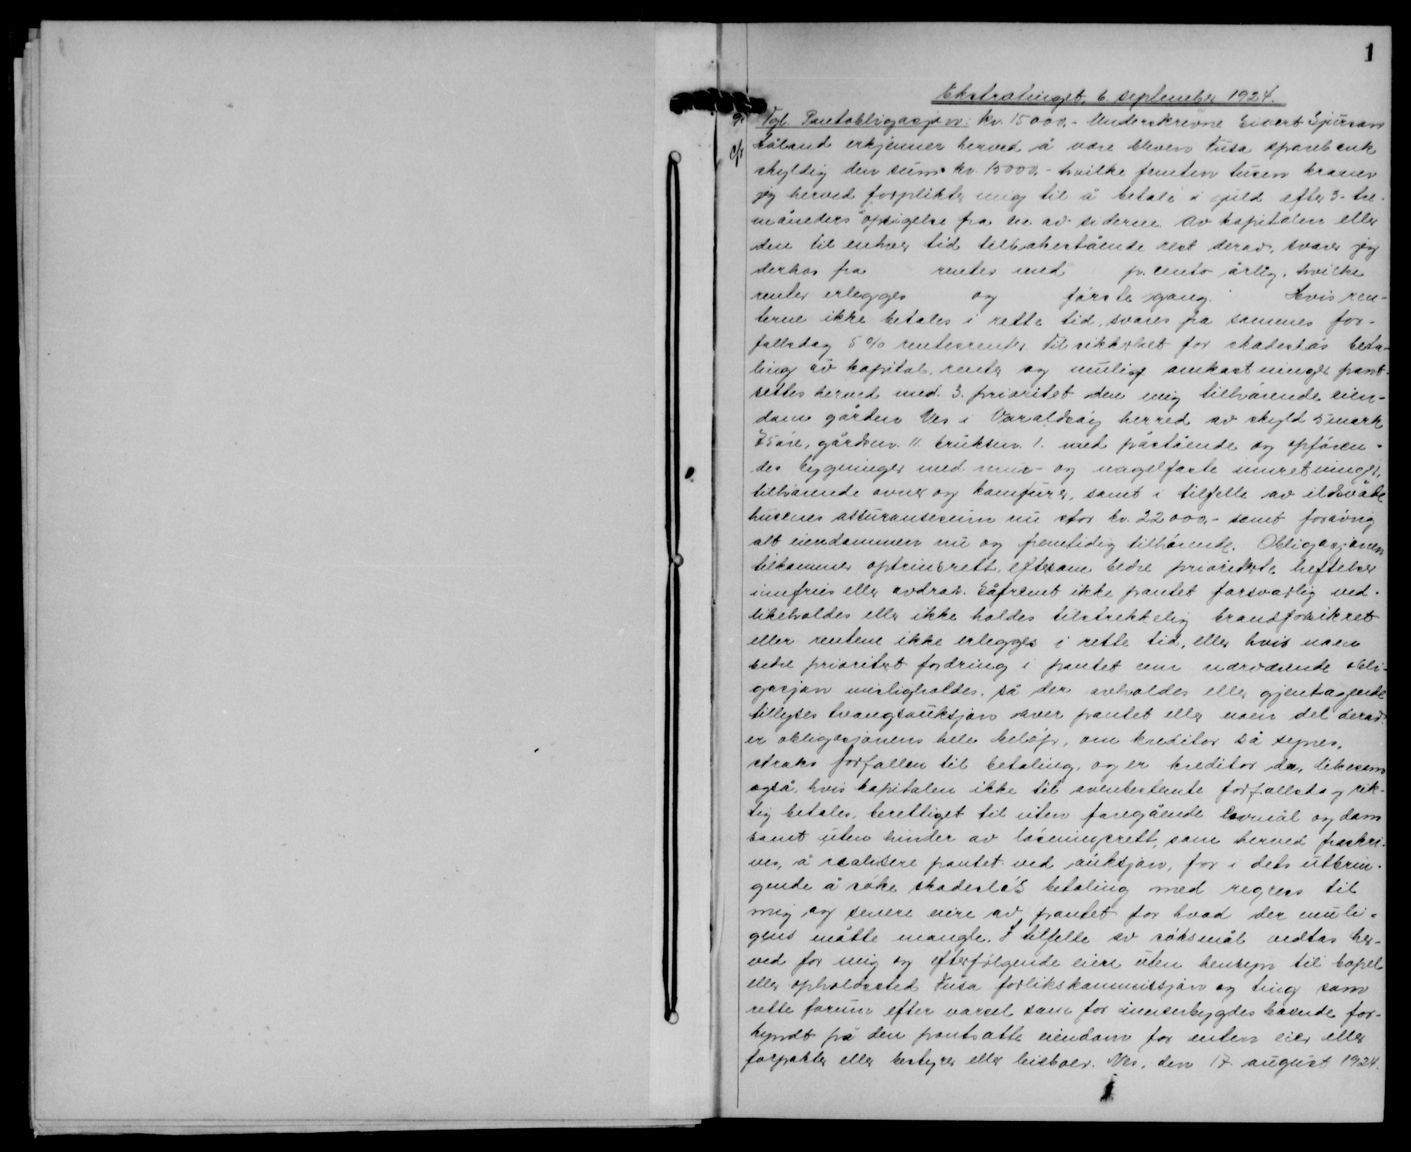 1
Ekstratinget, 6. september 1924.
9. Tgl. Pantobligasjon: kr. 15000,- Underskrevne Sivert Sjursen
Eåland erkjenner herved å være Strandvik Fusa sparebank
skyldig den sum kr. 15000,- hvilke femten tusen kroner
jeg herved forplikter mig til å betale i guld efter 3- tre
måneders opsigelse fra en av siderne. Av kapitalen eller
den til enhver tid tilbakestående rest derav, svarer jeg
derhos fra renter med pr. cento årlig, hvilke
renter erlegges og første gang. Hvis ren-
terne ikke betales i rette tid, svares fra sammes for-
fallsdag 5% rentesrenter. Til sikkerhet for skadesløs beta-
ling av kapital, renter og mulige omkostninger pant-
settes herved med 3. prioritet den mig tilhørende eien-
dom gården Nes i Varaldsøy herred av skyld 5 mark
75 øre, gårdsnr. 11 bruksnr. 1. med påstående og opføren-
des bygninger med mur- og nagelfaste innretninger,
tilhørende ovner og komfurer, samt i tilfelle av ildsvåde
husenes assuransesum nu stor kr. 22000,- samt forøvrig
alt eiendommen nu og fremtidig tilhørende. Obligasjonen
tilkommer optrinsrett, eftersom bedre prioriterte heftelser
innfries eller avdrar. Såfremt ikke pantet forsvarlig ved-
likeholdes eller ikke holdes tilstrekkelig brandforsikret
eller rentene ikke erlegges i rette tid, eller hvis noen
bedre prioritert fordring i pantet enn nærværende obli-
gasjon misligholdes, så der avholdes eller gjentagende
tillyses tvangsauksjon over pantet eller noen del derav
er obligasjonens hele beløp, om kreditor så synes,
straks forfallen til betaling, og er kreditor da, likesom
også, hvis kapitalen ikke til ovenbestemte forfallsdag rik-
tig betales, berettiget til uten foregående lovmål og dom
samt uten hinder av løsningsrett, som herved fraskri-
ves, å realisere pantet ved auksjon, for i dets utbrin-
gende å søke skadesløs betaling med regress til
mig og senere eiere av pantet for hvad der muli-
gens måtte mangle. I tilfelle av søksmål vedtas her-
ved for mig og efterfølgende eiere uten hensyn til bopel
eller opholdssted Fusa forlikskommissjon og ting som
rette forum efter varsel som for innenbygdes boende for-
kyndt på den pantsatte eiendom for enten eier eller
forpakter eller bestyrer eller beboer. Nes, den 17. august 1924.